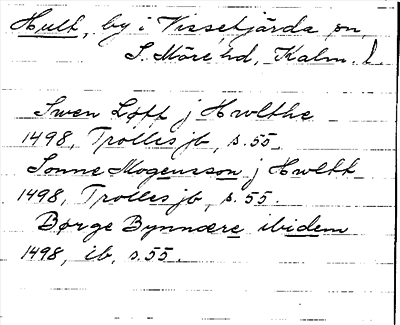 Hult, by i Vissefjärda sn,
S. Möre hd, Kalm. l
Swen Loff j Hwlthe
1498, Trolles jb, s. 55.
Sonne Mogensson j Hwltt
1498, Trolles jb, s. 55.
Børge Bynnære ibidem
1498, ib, s. 55.